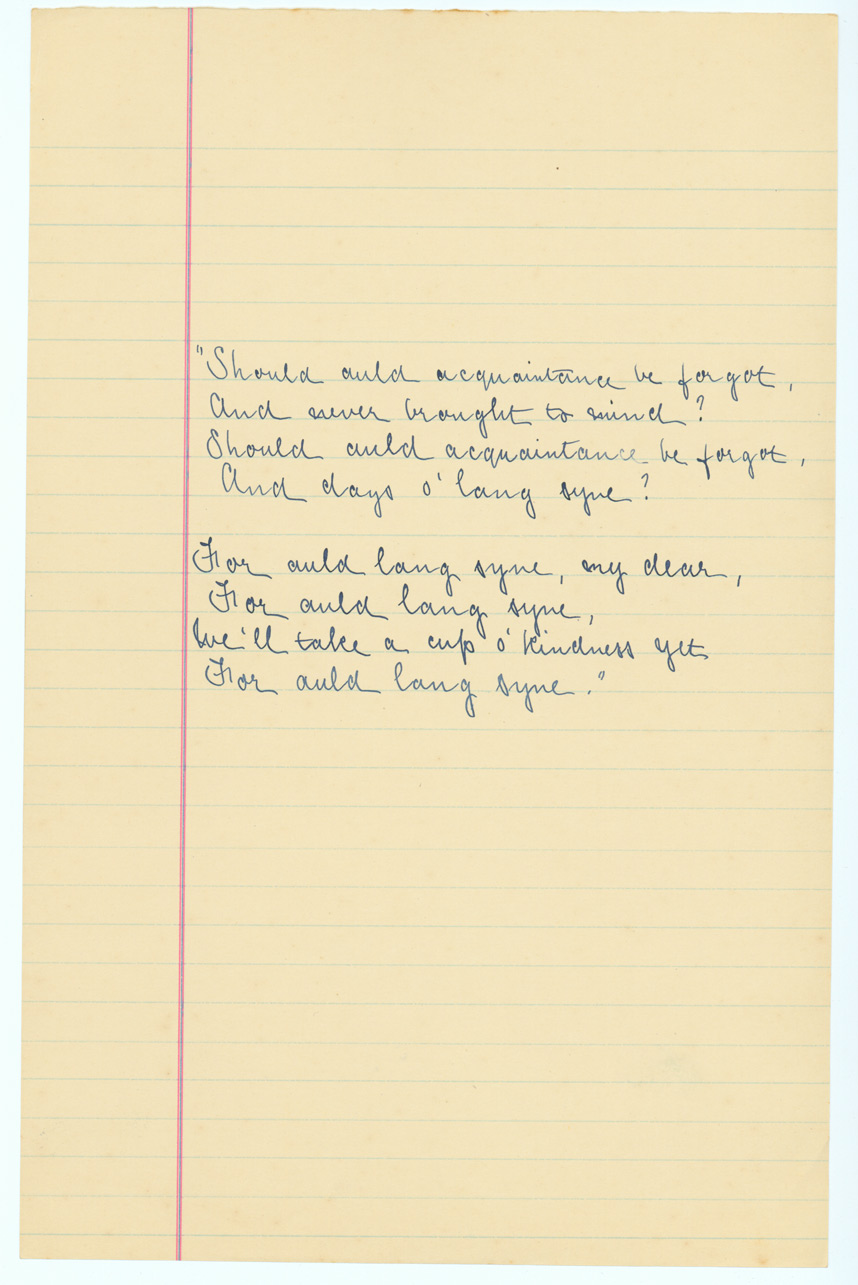 "Should auld acquaintance be forgot,
And never brought to mind?
Should auld acquaintance be forgot,
And days o' lang syne?
For auld lang syne, my dear,
For auld lang syne,
We'll take a cup o' kindness yet
For auld lang syne."